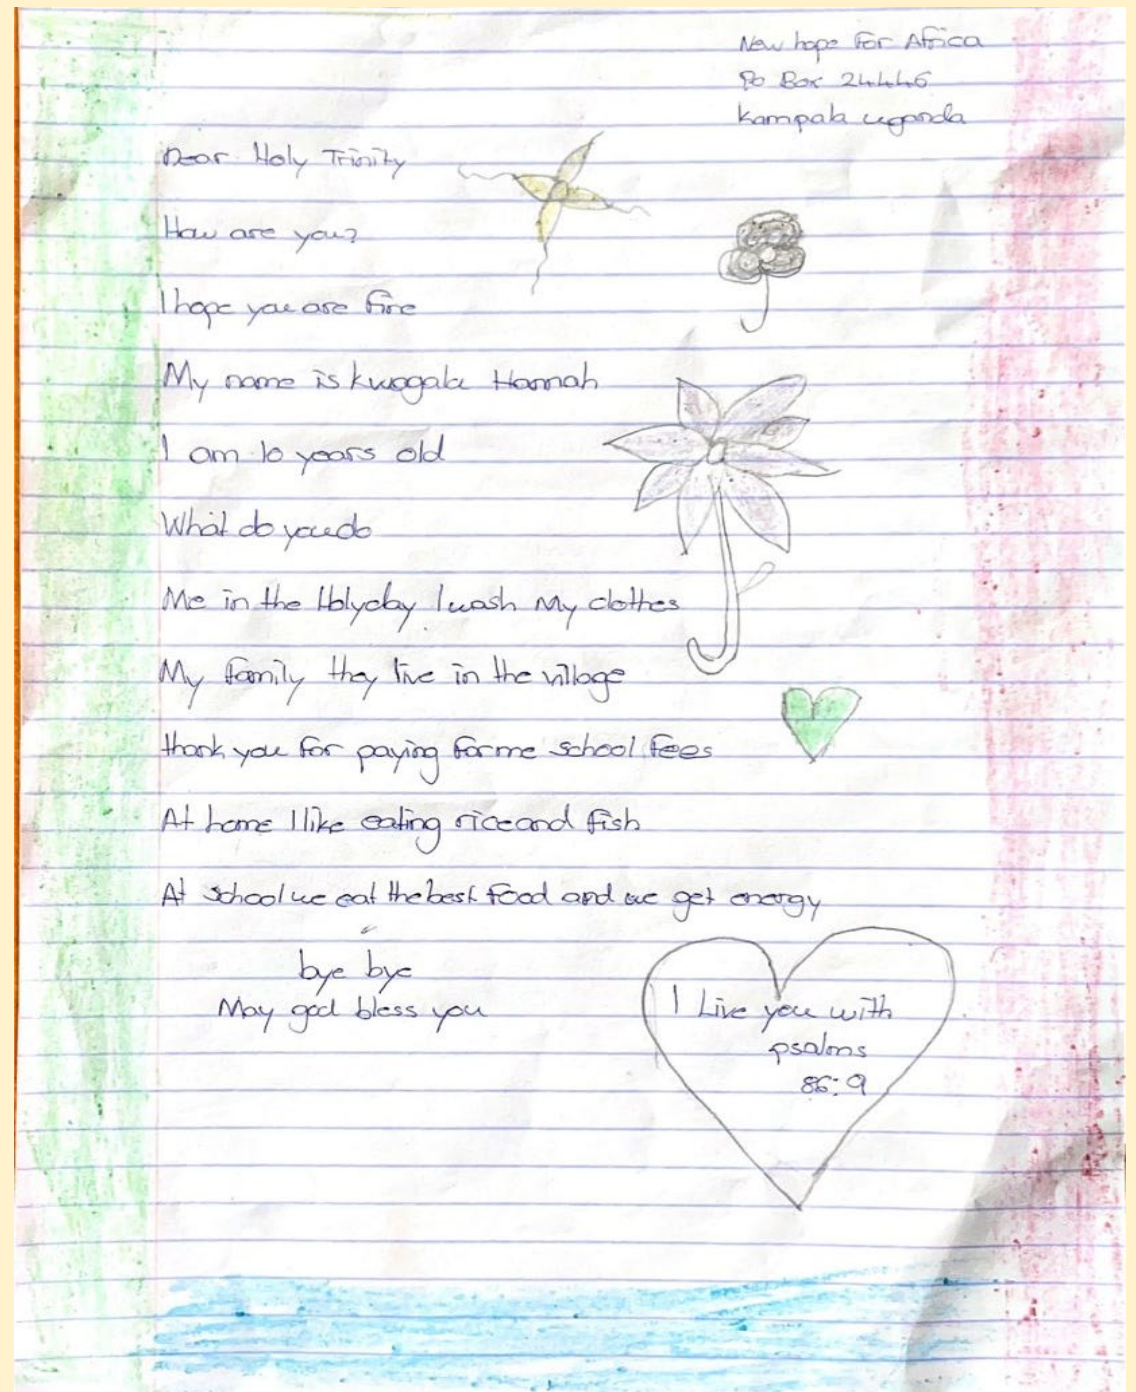 New hope For Africa
Po Box 24446
Kampala uganda
Dear Holy Trinity
How are you?
I hope you are fine
My name is kwagala Hannah
I am 10 years old
What do you do
Me in the Holyday I wash My clothes
My family they live in the village
thank you for paying for me school fees
At home I like eating rice and fish
At school we eat the best food and we get energy
bye bye
May god bless you
I Live you with
psalms
86:9